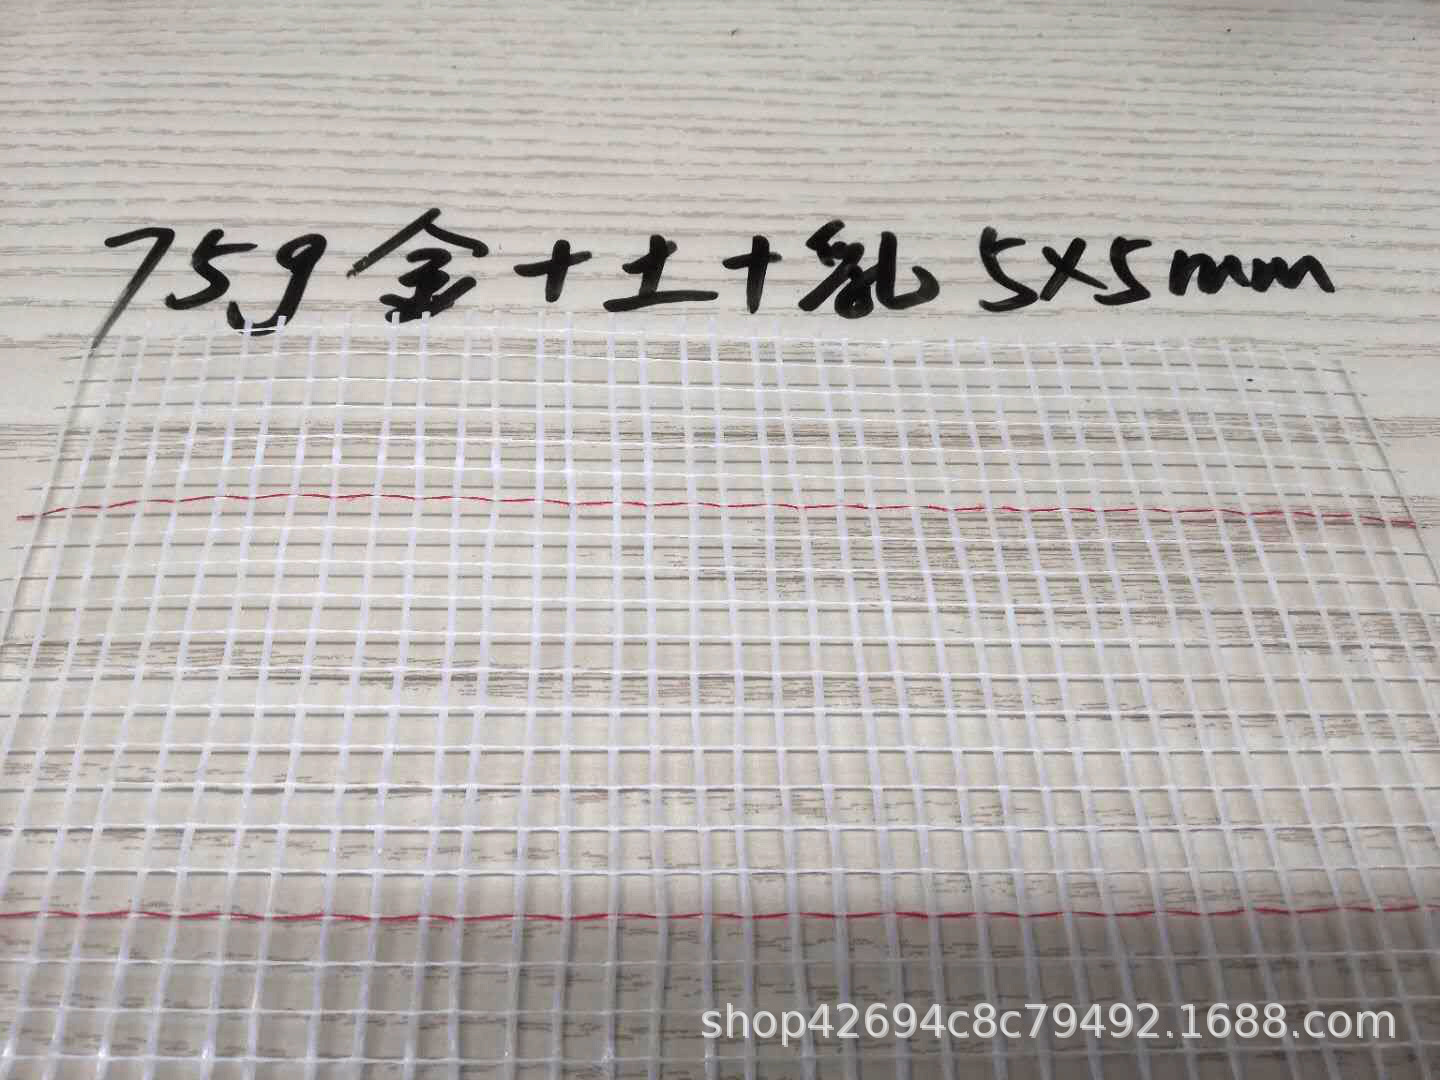 75g 金+土+乳 5×5mm
shop42694c8c79492.1688.com